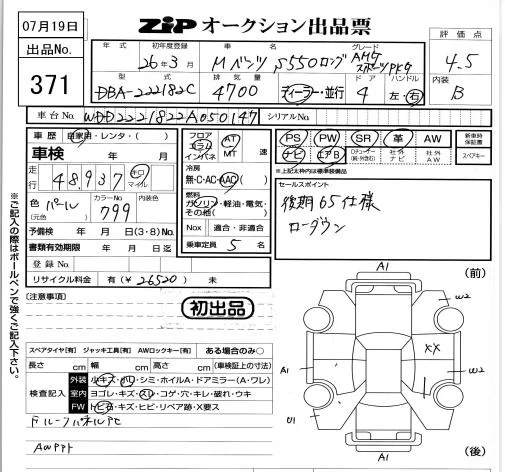 07月19日
ZIP オークション出品票
出品No.
371
年式 初年度登録 車名 グレード
26年3月 Mベンツ S550ロング AMGスポーツPKG
評価点
4.5
型式 排気量 ドア ハンドル
DBA-222182C 4700 ディーラー・並行 4 左・右
内装
B
車台No. WDD2221822A050147 シリアルNo.
車歴 自家用・レンタ・( )
車検 年 月
走行 48,937 キロ マイル
色 パール (元色) カラーNo. 799 内装色
予備検 年 月 日(3・8)No.
書類有効期限 年 月 日迄
登録No.
リサイクル料金 有(¥26520) 未
フロア コラム インパネ AT MT 速
冷房
無・C・AC・AAC
燃料
ガソリン・軽油・電気・その他( )
Nox 適合・非適合
乗車定員 5 名
PS PW SR 革 AW
ナビ エアB 社外ナビ 社外AW
新車時保証書
スペアキー
※上記太枠内は標準装備品
セールスポイント
後期65仕様
ローダウン
※ご記入の際はボールペンで強くご記入下さい。
(注意事項)
初出品
スペアタイヤ[有] ジャッキ工具[有] AWロックキー[有] ある場合のみ○
長さ cm 幅 cm 高さ cm (車検証上の寸法)
検査記入
外装 小キズ・凹・シミ・ホイルA・ドアミラー(A・ワレ)
室内 ヨゴレ・キズ・スレ・コゲ・穴・キレ・破れ・ウキ
FW トビ石・キズ・ヒビ・リペア跡・X要ス
(前)
A1
W2
XX
A1
W2
U1
A1
(後)